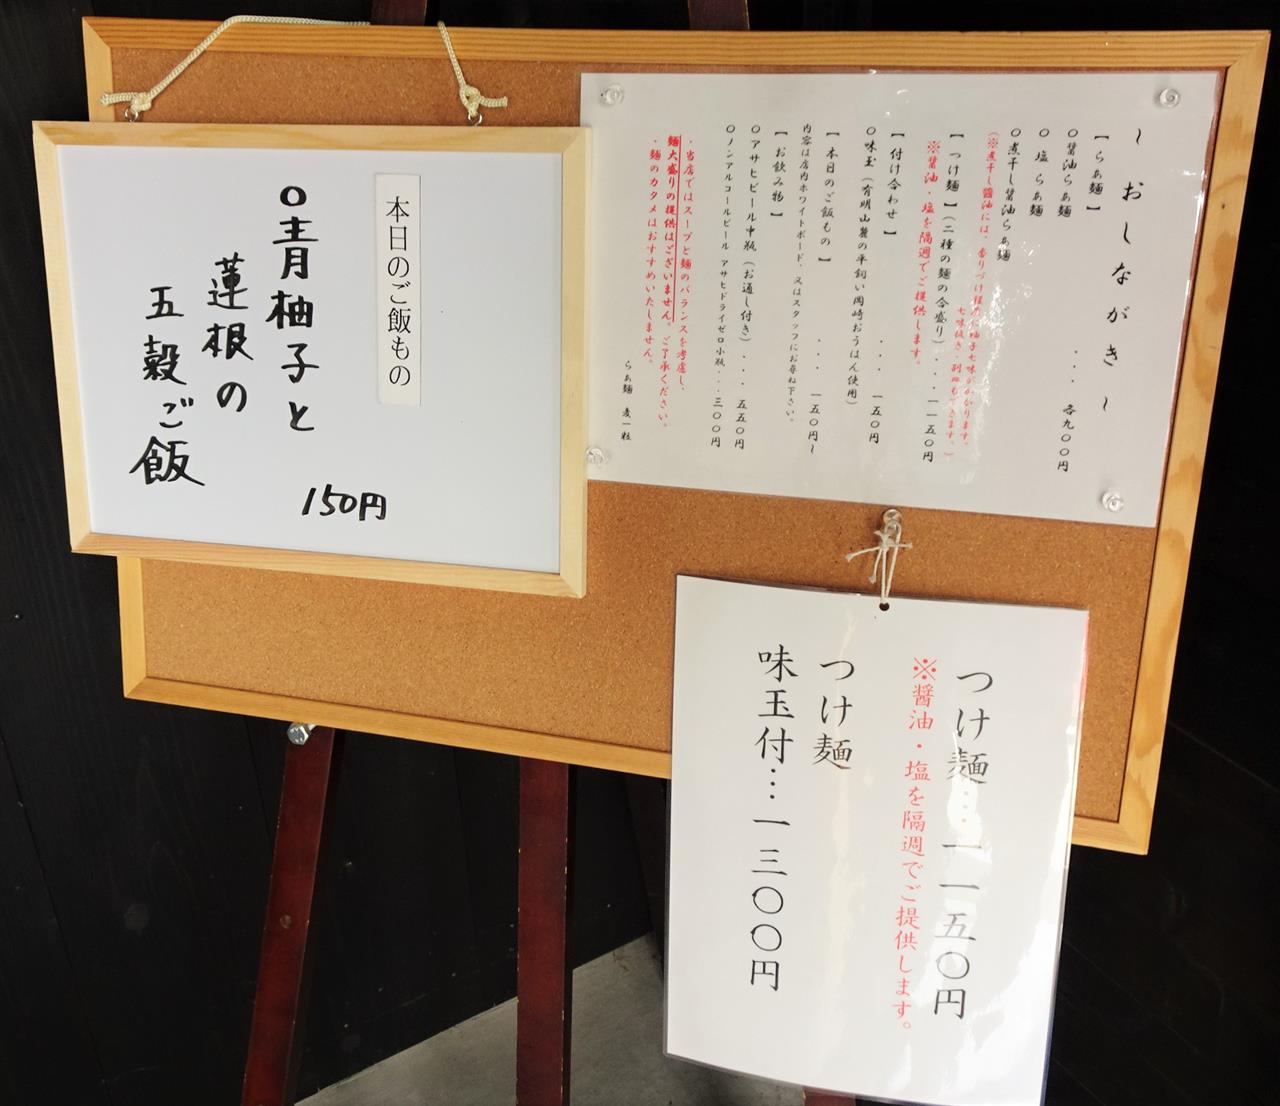 本日のご飯もの
○青柚子と
蓮根の
五穀ご飯
150円
～おしながき～
【らぁ麺】
○醤油らぁ麺
○塩らぁ麺
・・・各九〇〇円
○煮干し醤油らぁ麺
七味抜き・別皿もできます。)
【つけ麺】(二種の麺の合盛り)・・・一一五〇円
※醤油・塩を隔週でご提供します。
【付け合わせ】
○味玉(有明山麓の平飼い岡崎おうはん使用)
・・・一五〇円
【本日のご飯もの】
・・・一五〇円～
内容は店内ホワイトボード、又はスタッフにお尋ね下さい。
【お飲み物】
○アサヒビール中瓶(お通し付き)・・・五五〇円
○ノンアルコールビール アサヒドライゼロ小瓶・・・三〇〇円
・当店ではスープと麺のバランスを考慮し、
麺大盛りの提供はございません。ご了承ください。
・麺のカタメはおすすめいたしません。
らぁ麺 麦一粒
つけ麺…一一五〇円
※醤油・塩を隔週でご提供します。
つけ麺
味玉付…一三〇〇円